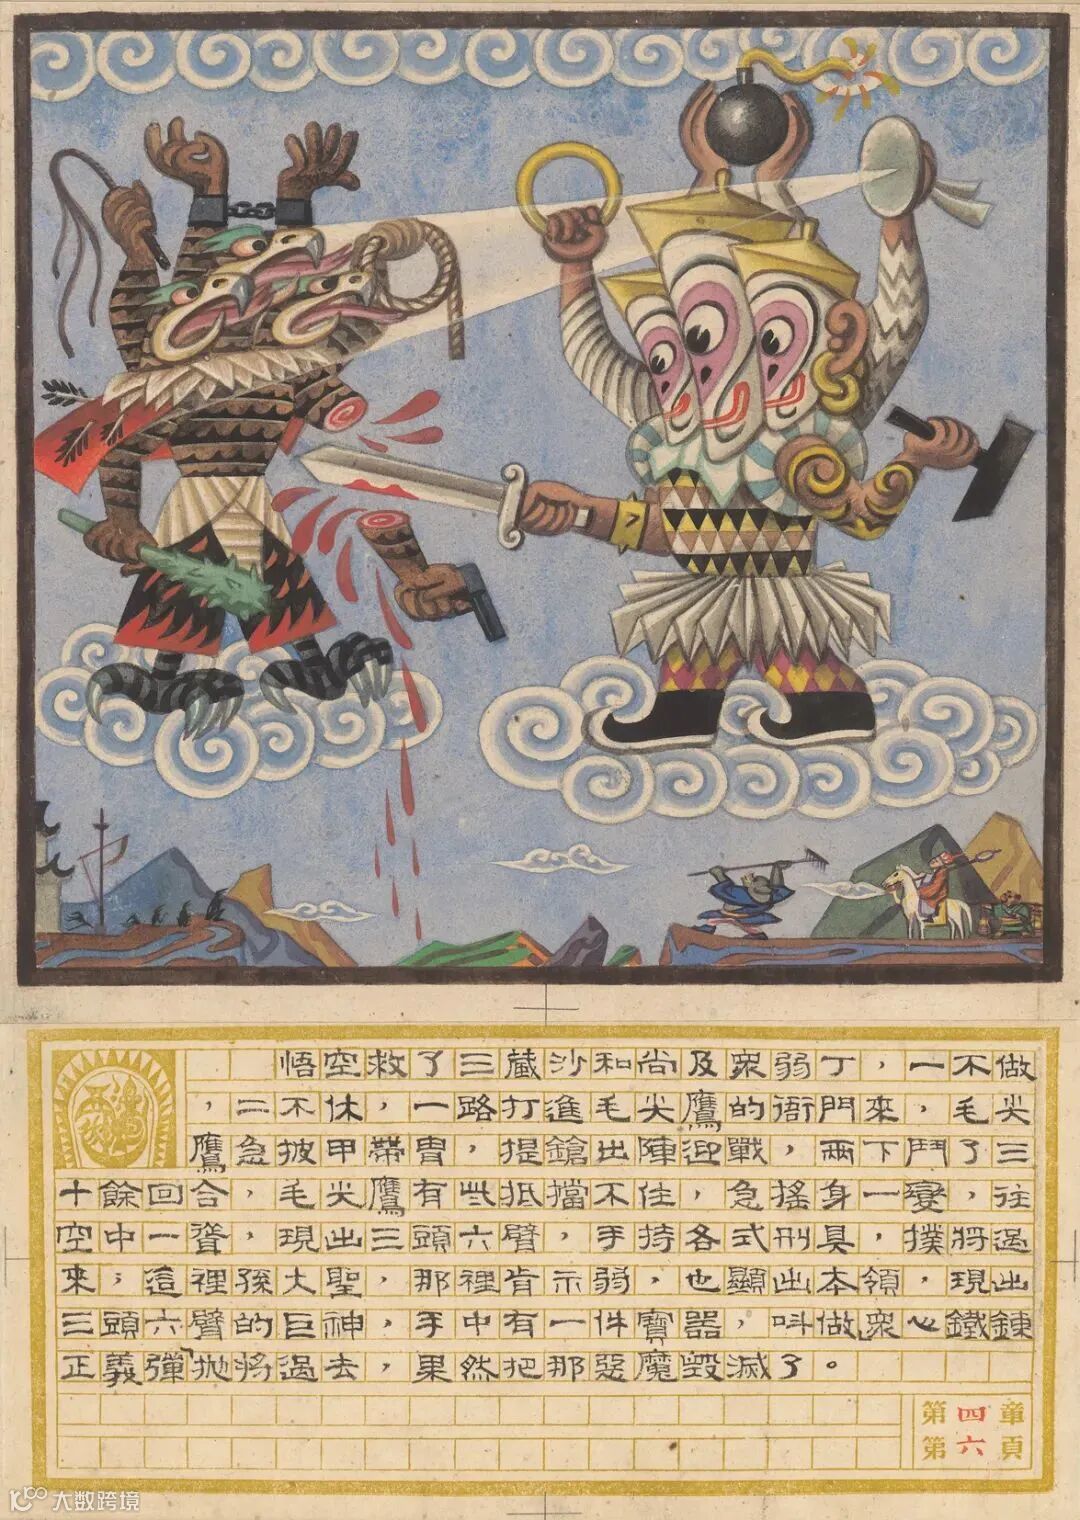 悟空救了三藏沙和尚及衆弱丁，一不做
，二不休，一路打進毛尖鷹的衙門來，毛尖
鷹急披甲帶冑，提鎗出陣迎戰，兩下鬥了三
十餘回合，毛尖鷹有些抵擋不住，急搖身一變，往
空中一聳，現出三頭六臂，手持各式刑具，撲將過
來；這裡孫大聖，那裡肯示弱，也顯出本領，現出
三頭六臂的巨神，手中有一件寶器，叫做「衆心鐵鍊
正義彈」拋將過去，果然把那惡魔毀滅了。
第四章
第六頁
大数跨境